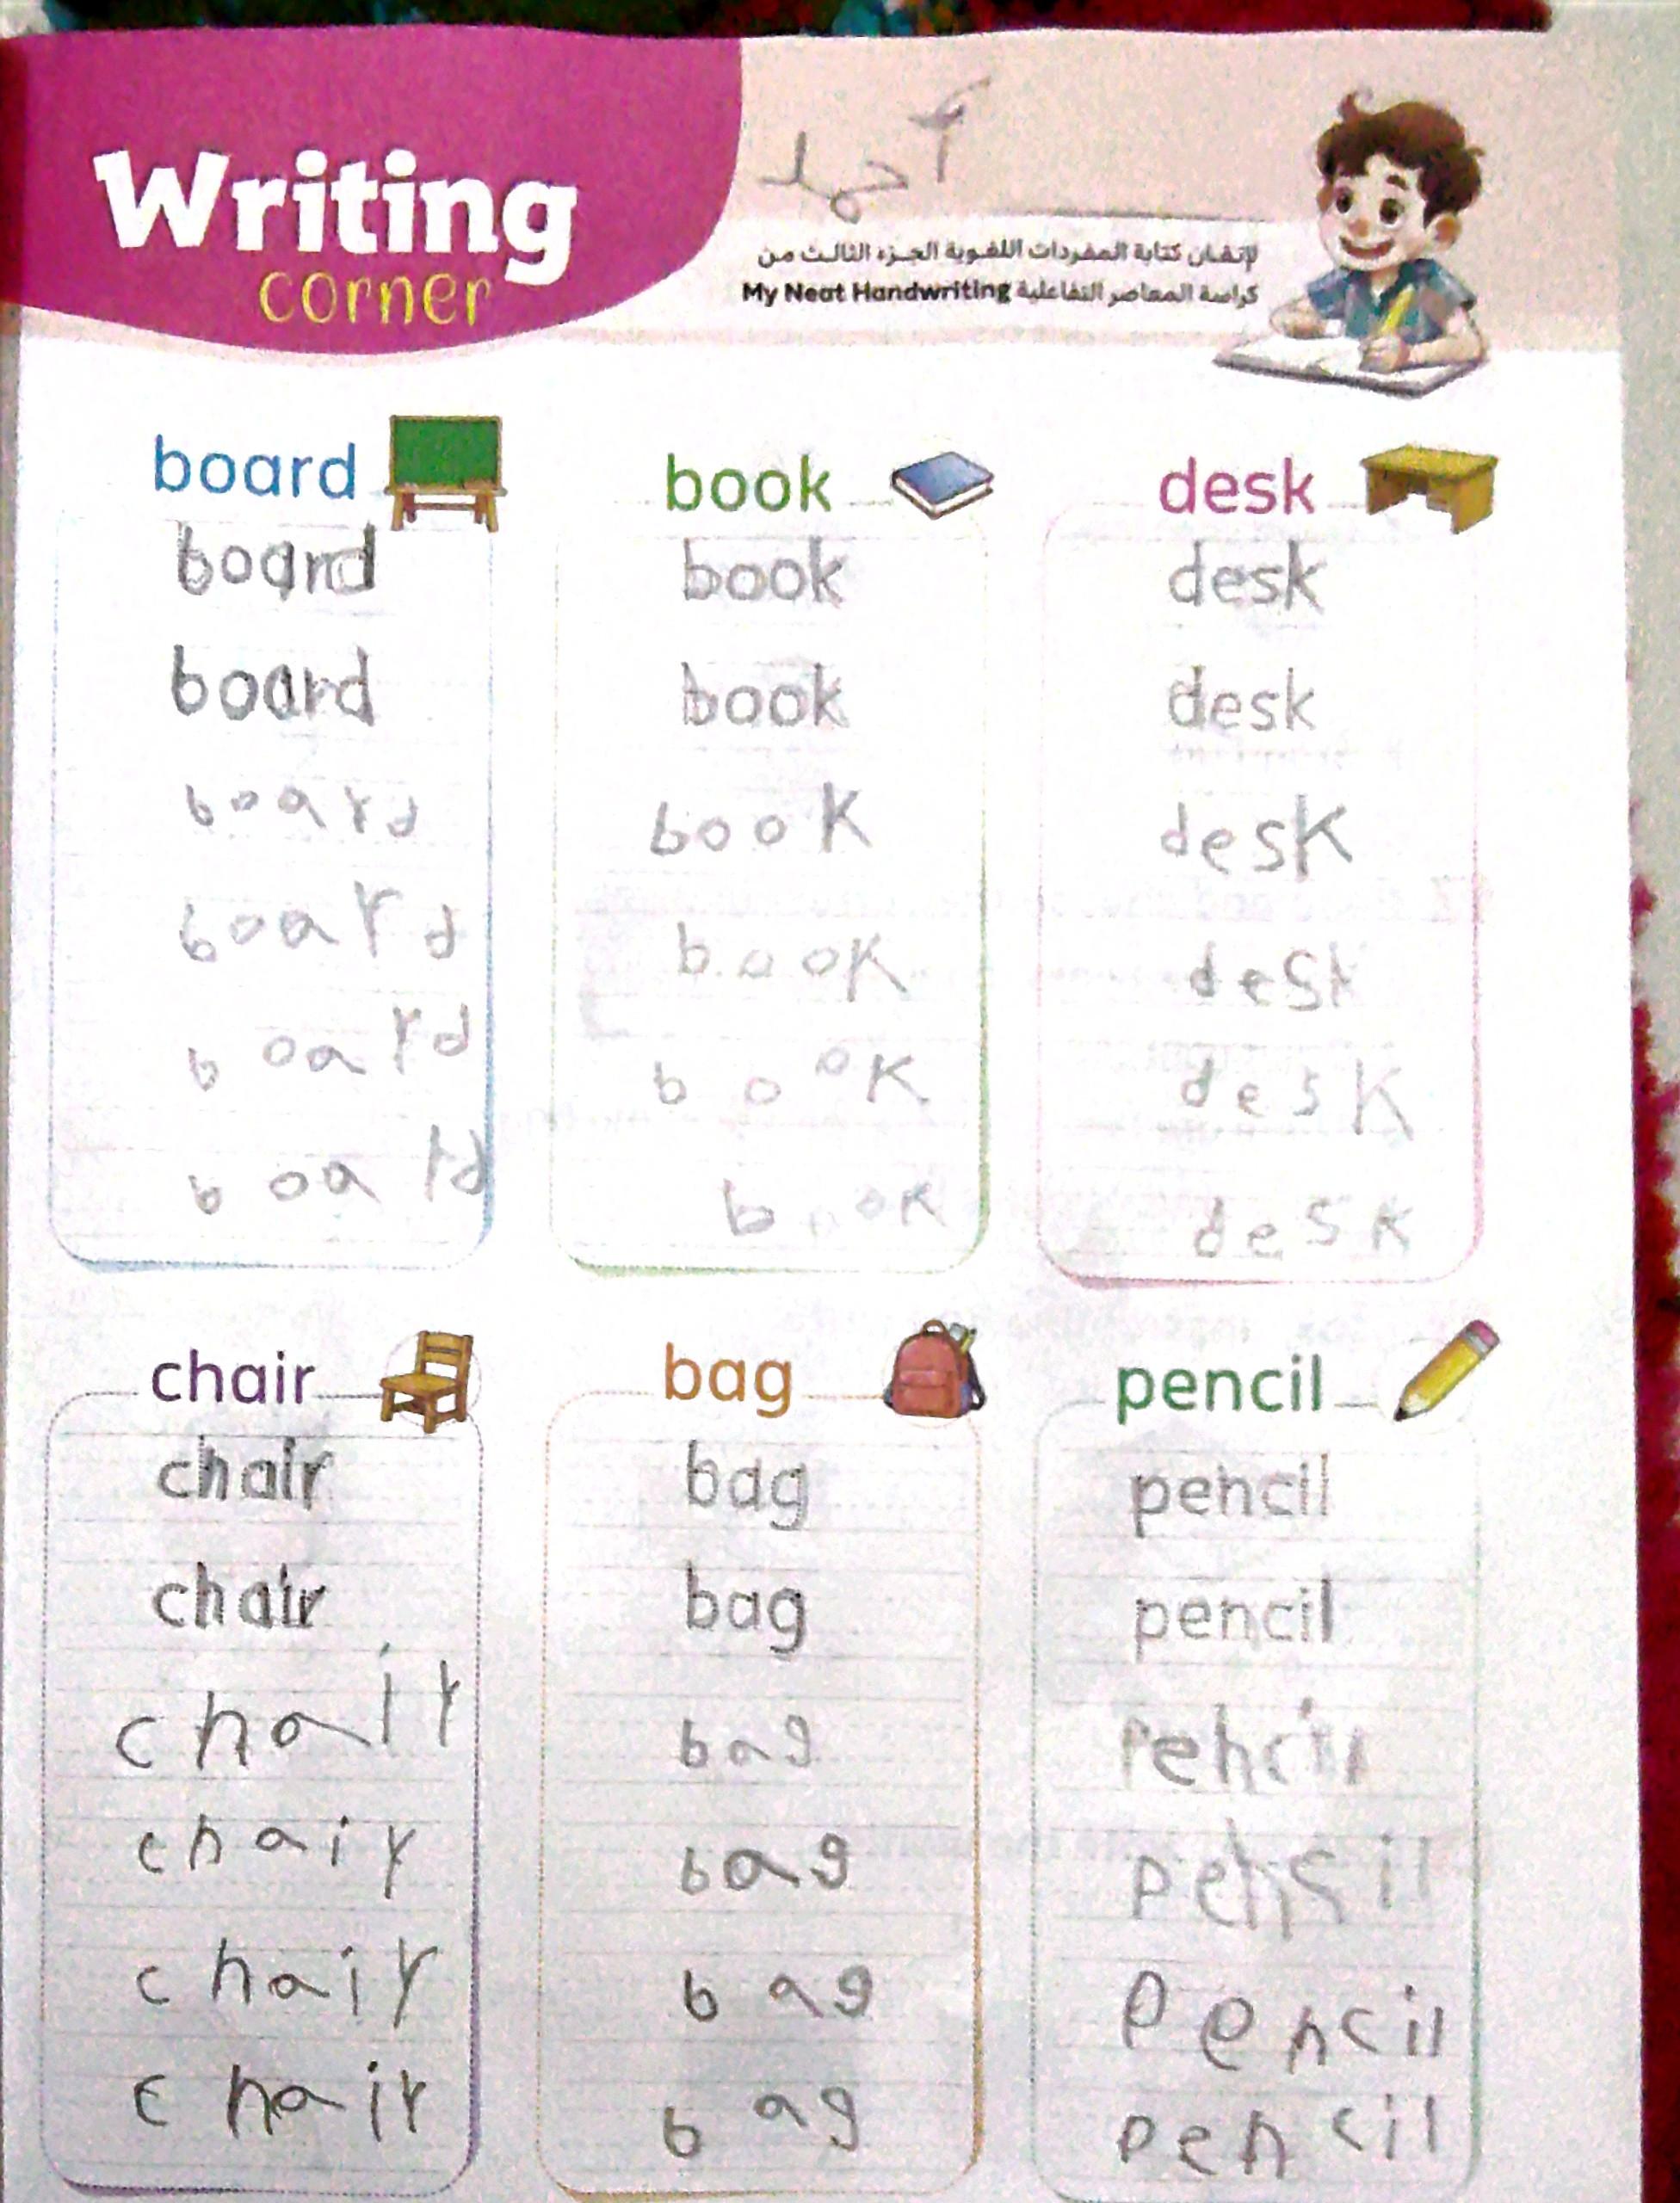 Writing
corner
أحمد
لإتقان كتابة المفردات اللغوية الجزء الثالث من
كراسة المعاصر التفاعلية My Neat Handwriting
board
board
board
board
board
board
board
book
book
book
book
book
book
b ok
desk
desk
desk
desK
desk
desK
desK
chair
chair
chair
chair
chair
chair
chair
bag
bag
bag
bag
bag
bag
bag
pencil
pencil
pencil
pencil
pencil
pencil